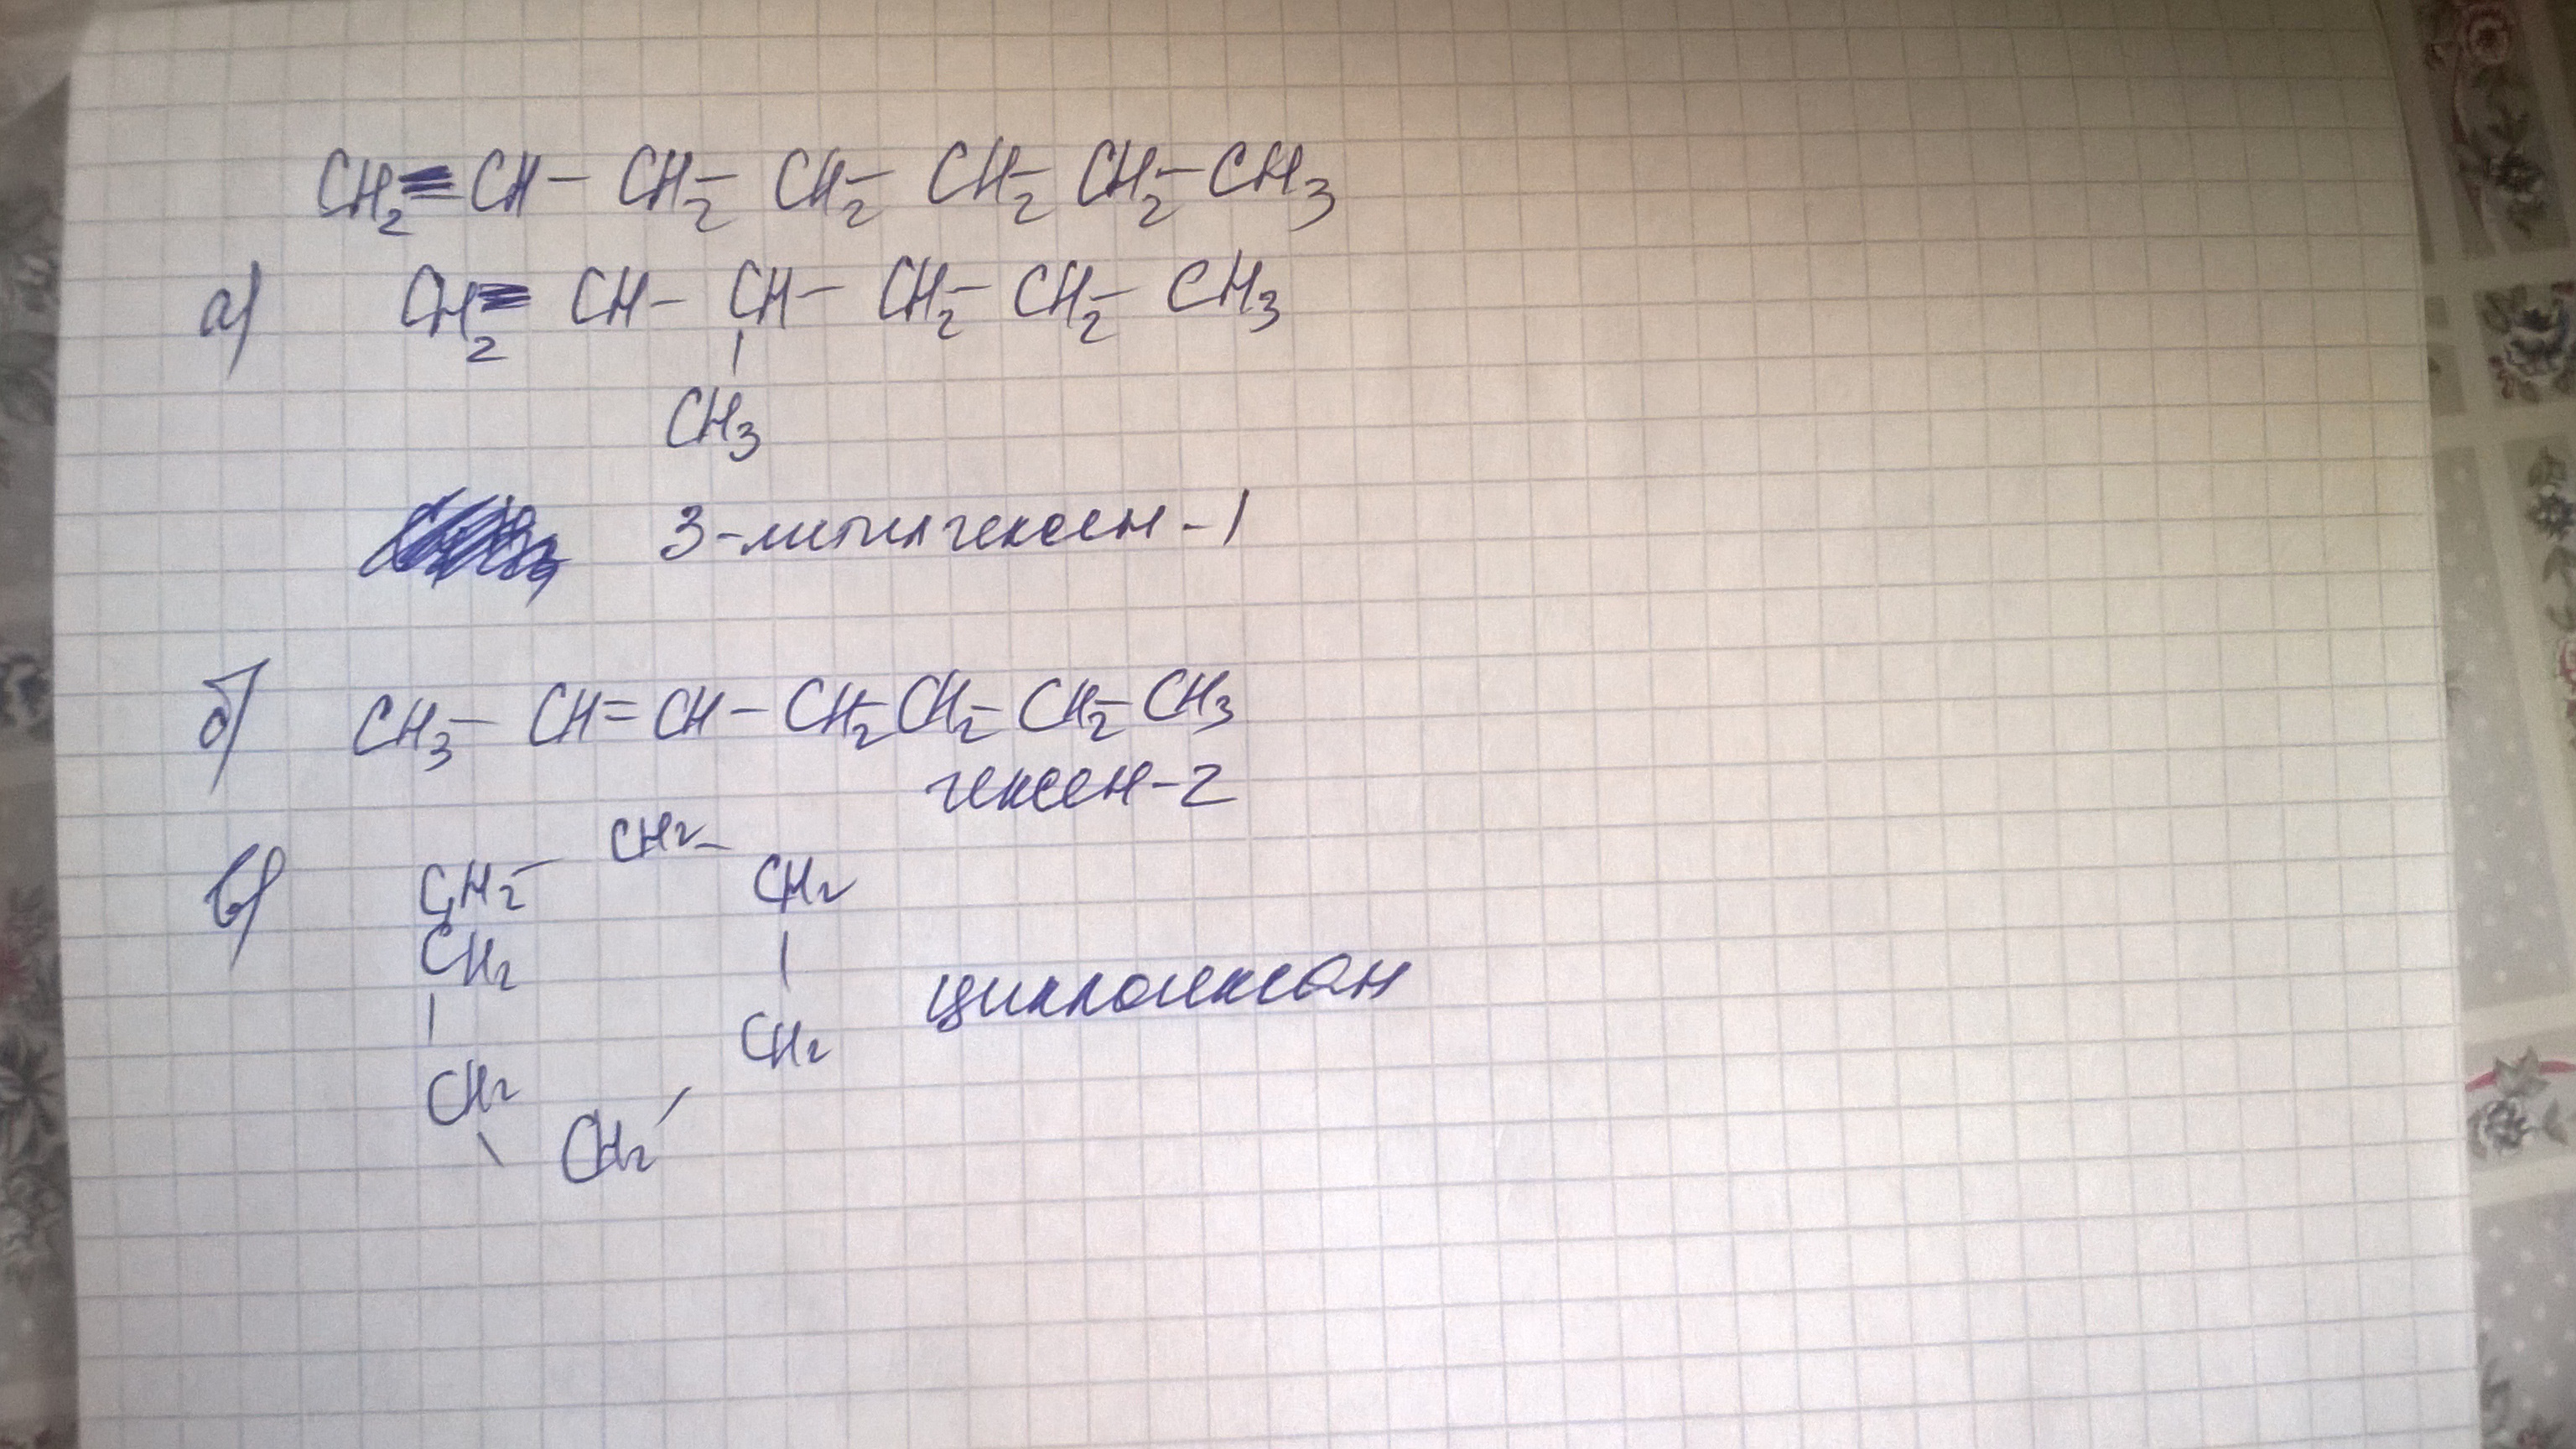 CH₂=CH-CH₂-CH₂-CH₂-CH₂-CH₃
а) CH₂=CH-CH-CH₂-CH₂-CH₃
|
CH₃
3-метилгексен-1
б) CH₃-CH=CH-CH₂-CH₂-CH₂-CH₃
гексен-2
в) CH₂-CH₂-CH₂
CH₂
| |
CH₂ CH₂
\ CH₂ /
циклогексан